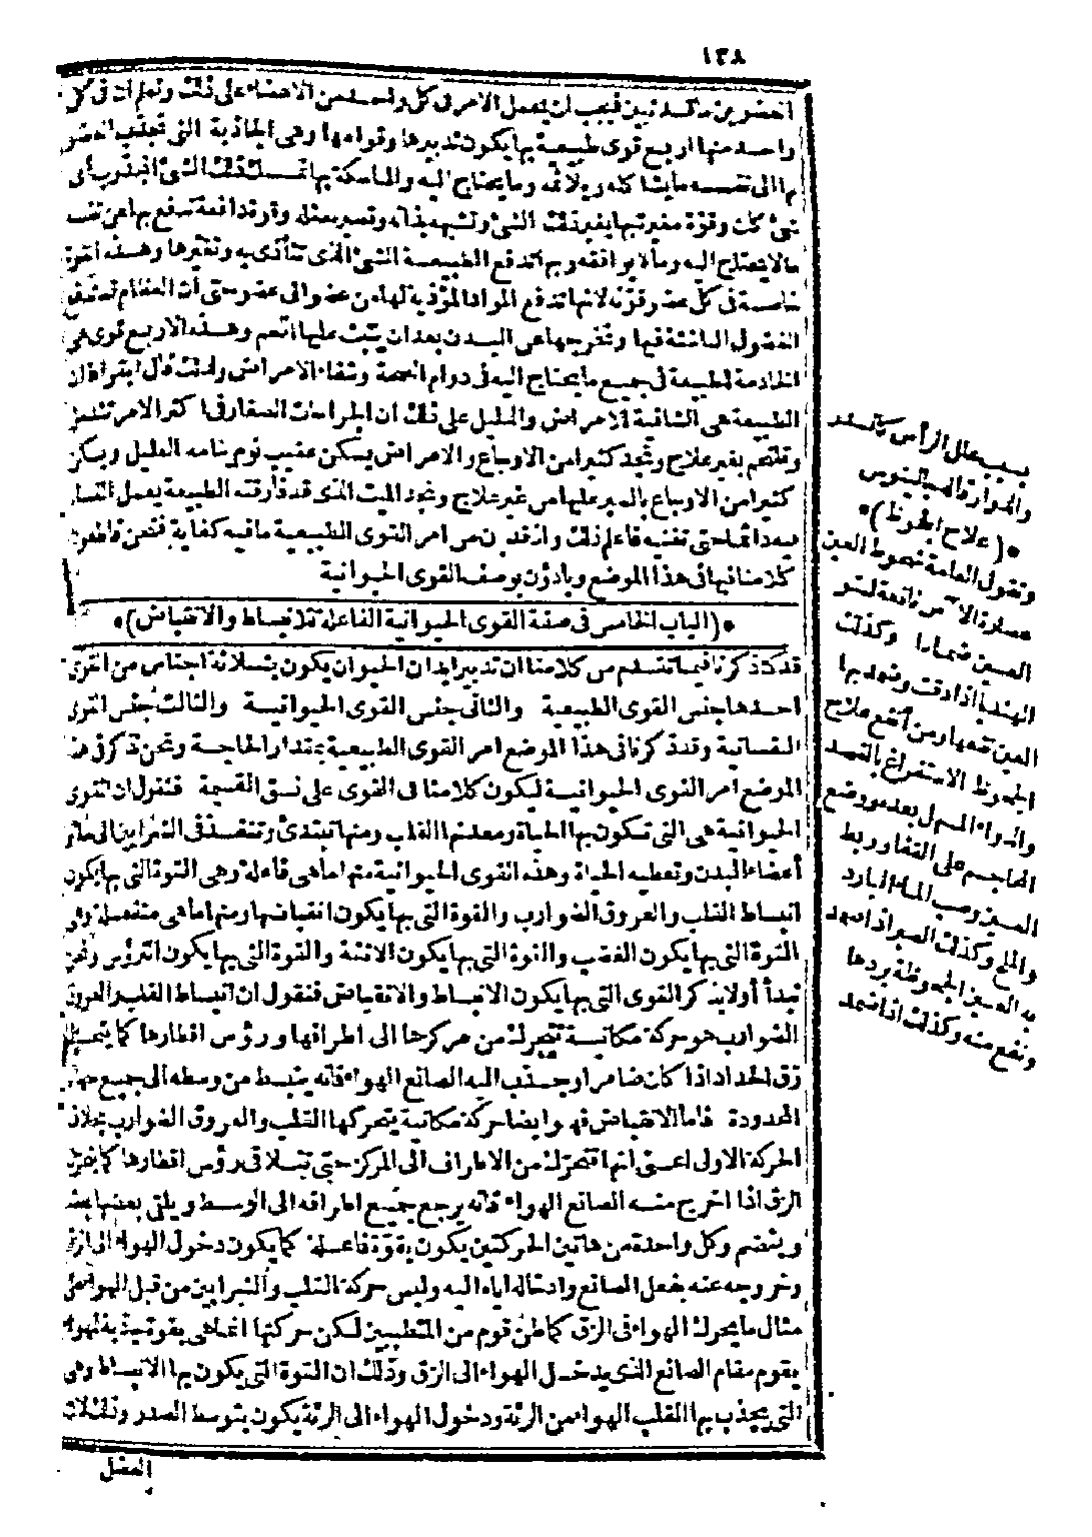 ١٣٨
العضوين ما قد تبين فيجب ان يعمل الامر فى كل واحد من الاعضاء على ذلك وتعلم ان فى كل
واحد منها اربع قوى طبيعية بها يكون تدبيرها وقوامها وهى الجاذبة التى تجذب العضو
بها الى نفسه ما يشاكله ويلائمه وما يحتاج اليه والماسكة بها تمسك ذلك الشئ المجذوب أى
شئ كان وقوة مغيرة بها يغير ذلك الشئ وتشبهه بذاته وتصير مثله وقوة دافعة تدفع بها عن نفسه
مالا يحتاج اليه ومالا يوافقه وبها تدفع الطبيعة الشئ الذى تتأذى به وتغيرها وهذه القوة
خاصة فى كل عضو قوته لانها تدفع المواد المؤذية لها من عضو الى عضو حتى ان العظام
الفضول الداخلة فيها وتخرجها عن البدن بعد ان ينبت عليها اللحم وهذه الاربع قوى هى
الخادمة للطبيعة فى جميع ما يحتاج اليه فى دوام الصحة وشفاء الامراض ولذلك قال ابقراط ان
الطبيعة هى الشافية للامراض والدليل على ذلك ان الجراحات الصغار فى اكثر الامر تندمل
وتلتحم بغير علاج ونجد كثيرا من الاوجاع والامراض يسكن عقيب نوم ينامه العليل ويسكن
كثيرا من الاوجاع بالصبر عليها من غير علاج ونجد الميت الذى قد فارقته الطبيعة يعمل الفساد
فيه دائما حتى تفنيه فاعلم ذلك واذ قد بين من امر القوى الطبيعية ما فيه كفاية فنحن قاطعون
كلامنا فيها فى هذا الموضع وبادؤن بوصف القوى الحيوانية
*(الباب الخامس فى صفة القوى الحيوانية الفاعلة للانبساط والانقباض)*
قد كنا ذكرنا فيما تقدم من كلامنا ان تدبير ابدان الحيوان يكون بثلاثة اجناس من القوى
احدها جنس القوى الطبيعية والثانى جنس القوى الحيوانية والثالث جنس القوى
النفسانية وقد ذكرنا فى هذا الموضع امر القوى الطبيعية بمقدار الحاجة ونحن نذكر فى هذا
الموضع امر القوى الحيوانية ليكون كلامنا فى القوى على نسق القسمة فنقول ان القوى
الحيوانية هى التى تكون بها الحياة ومعدنها القلب ومنها تبتدئ وتنفذ فى الشرايين الى سائر
أعضاء البدن وتعطيه الحياة وهذه القوى الحيوانية منها ما هى فاعلة وهى القوة التى بها يكون
انبساط القلب والعروق الضوارب والقوة التى بها يكون انقباضها ومنها ما هى منفعلة وهى
القوة التى بها يكون الغضب والقوة التى بها يكون الانفة والقوة التى بها يكون الترؤس ونحن
نبدأ أولا بذكر القوى التى بها يكون الانبساط والانقباض فنقول ان انبساط القلب والعروق
الضوارب هو حركة مكانية تتحرك من مركزها الى اطرافها ورؤس اقطارها كما
زق الحداد اذا كان ضامرا وجذب اليه الصانع الهواء فانه ينبسط من وسطه الى جميع جهاته
المحدودة فاما الانقباض فهو ايضا حركة مكانية يتحركها القلب والعروق الضوارب بخلاف
الحركة الاولى اعنى انها تتحرك من الاطراف الى المركز حتى تتلاقى رؤس اقطارها كما يعرض
الزق اذا اخرج منه الصانع الهواء فانه يرجع جميع اطرافه الى الوسط ويلتى بعضها بعض
وينضم وكل واحدة من هاتين الحركتين يكون بقوة فاعلة كما يكون دخول الهواء الى الزق
وخروجه عنه بفعل الصانع وادخاله اياه اليه وليس حركة القلب والشرايين من قبل الهواء على
مثال ما يحرك الهواء فى الزق كما ظن قوم من المتطببين لكن حركتها انما هى بقوة جذبه للهواء
يقوم مقام الصانع الذى يدخل الهواء الى الزق وذلك ان القوة التى يكون بها الانبساط وهى
التى يجذب بها القلب الهواء من الرئة ودخول الهواء الى الرئة يكون بتوسط الصدر وتلك
العضل
بسبب علل الرأس كالسدر
والحرارة قاله جالينوس
*(علاج الجحوظ)*
وتقول العامة جحوط العين
عصارة الآس نافعة لنتو
العين ضمادا وكذلك
الهندبا اذا دقت وضمد بها
العين ضمادا ومن أنفع علاج
الجحوظ الاستفراغ بالفصد
والدواء المسهل بعده ووضع
المحاجم على القفا وربط
العين وصب الماء البارد
والملح وكذلك الصبر اذا ضمد
به العين الجحوظة يردها
ونفع منه وكذلك اذا ضمد